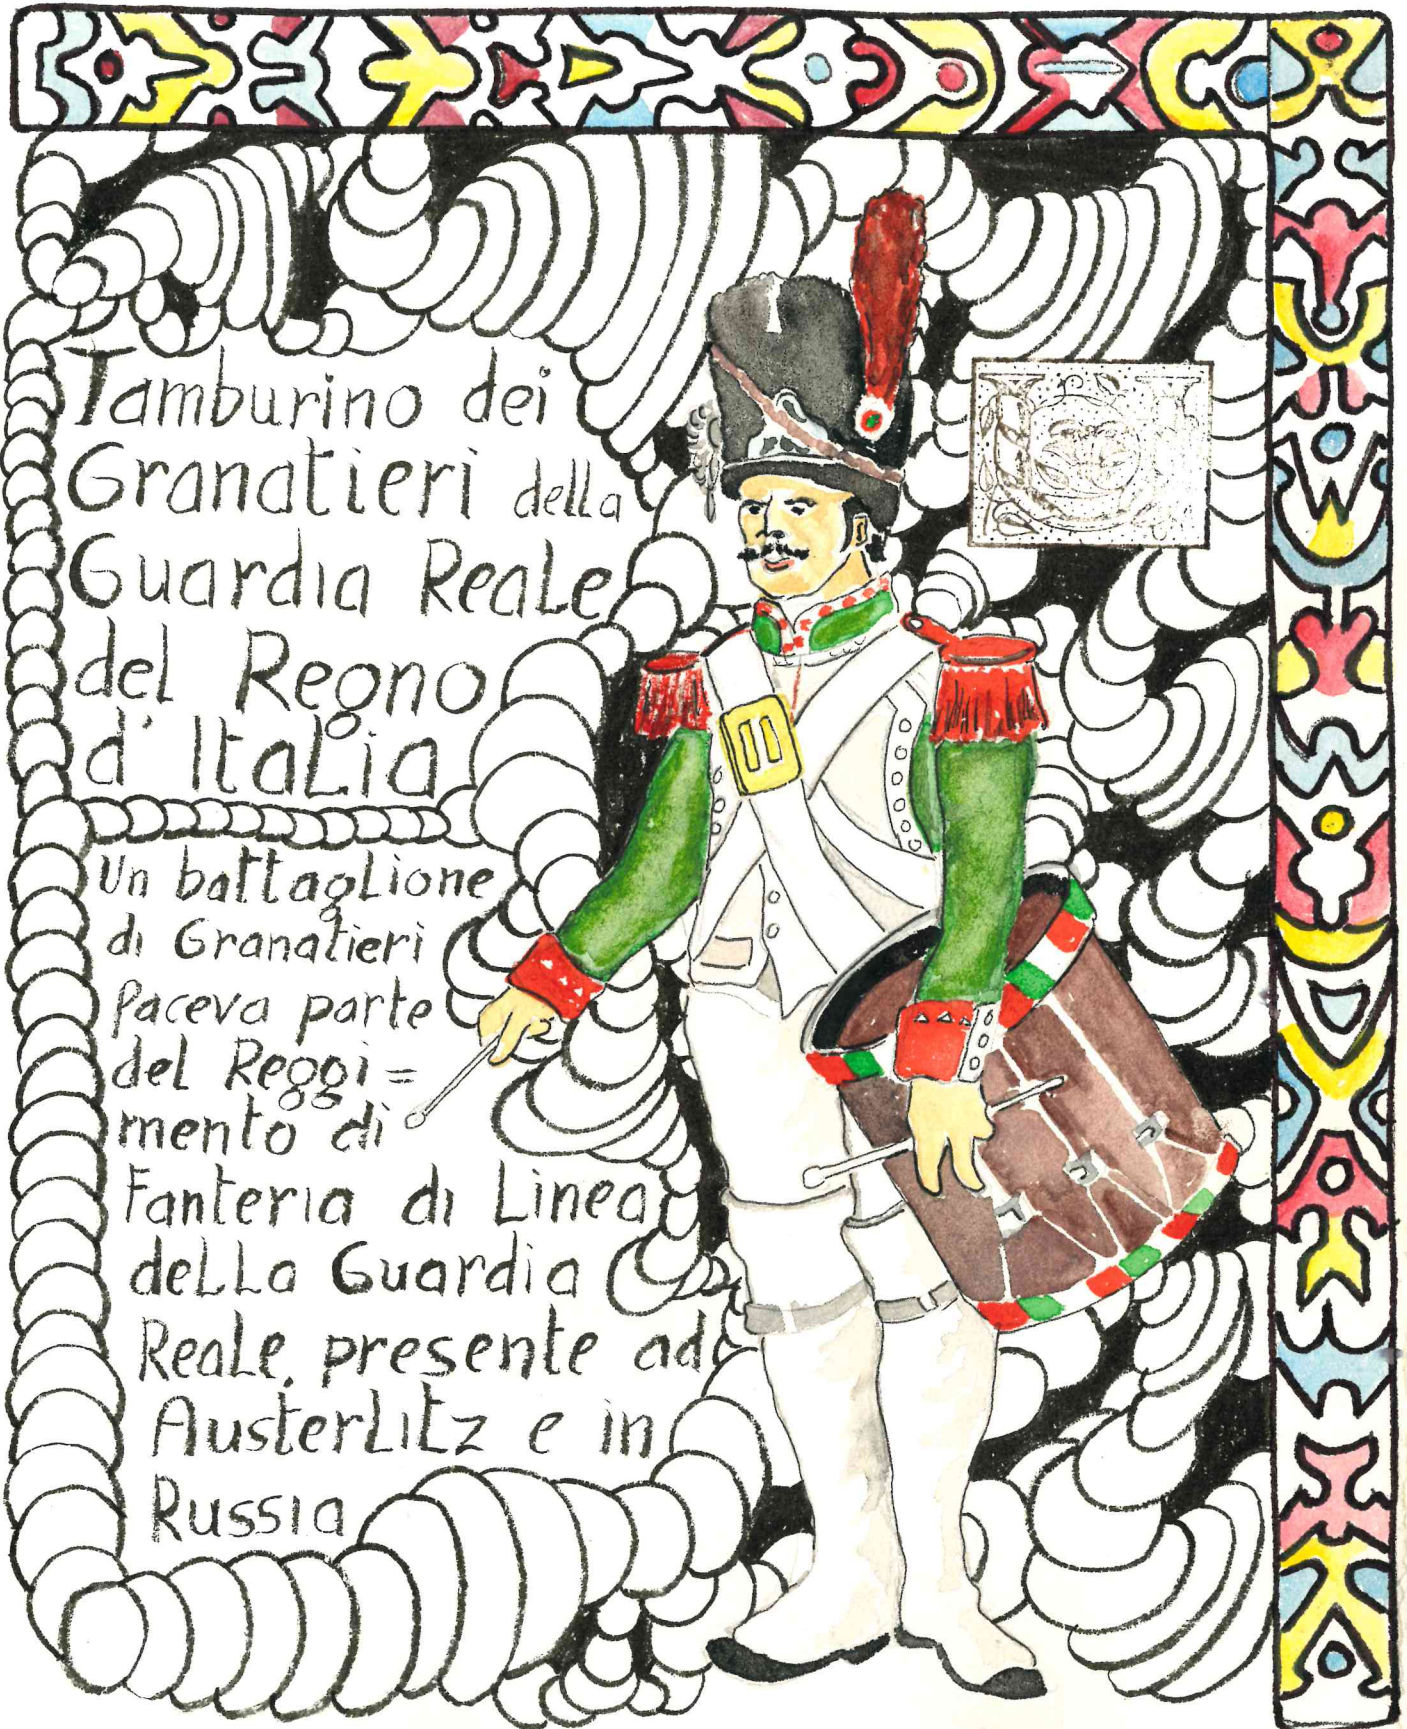 Tamburino dei
Granatieri della
Guardia Reale
del Regno
d'Italia
Un battaglione
di Granatieri
faceva parte
del Reggi=
mento di
Fanteria di Linea
della Guardia
Reale, presente ad
Austerlitz e in
Russia